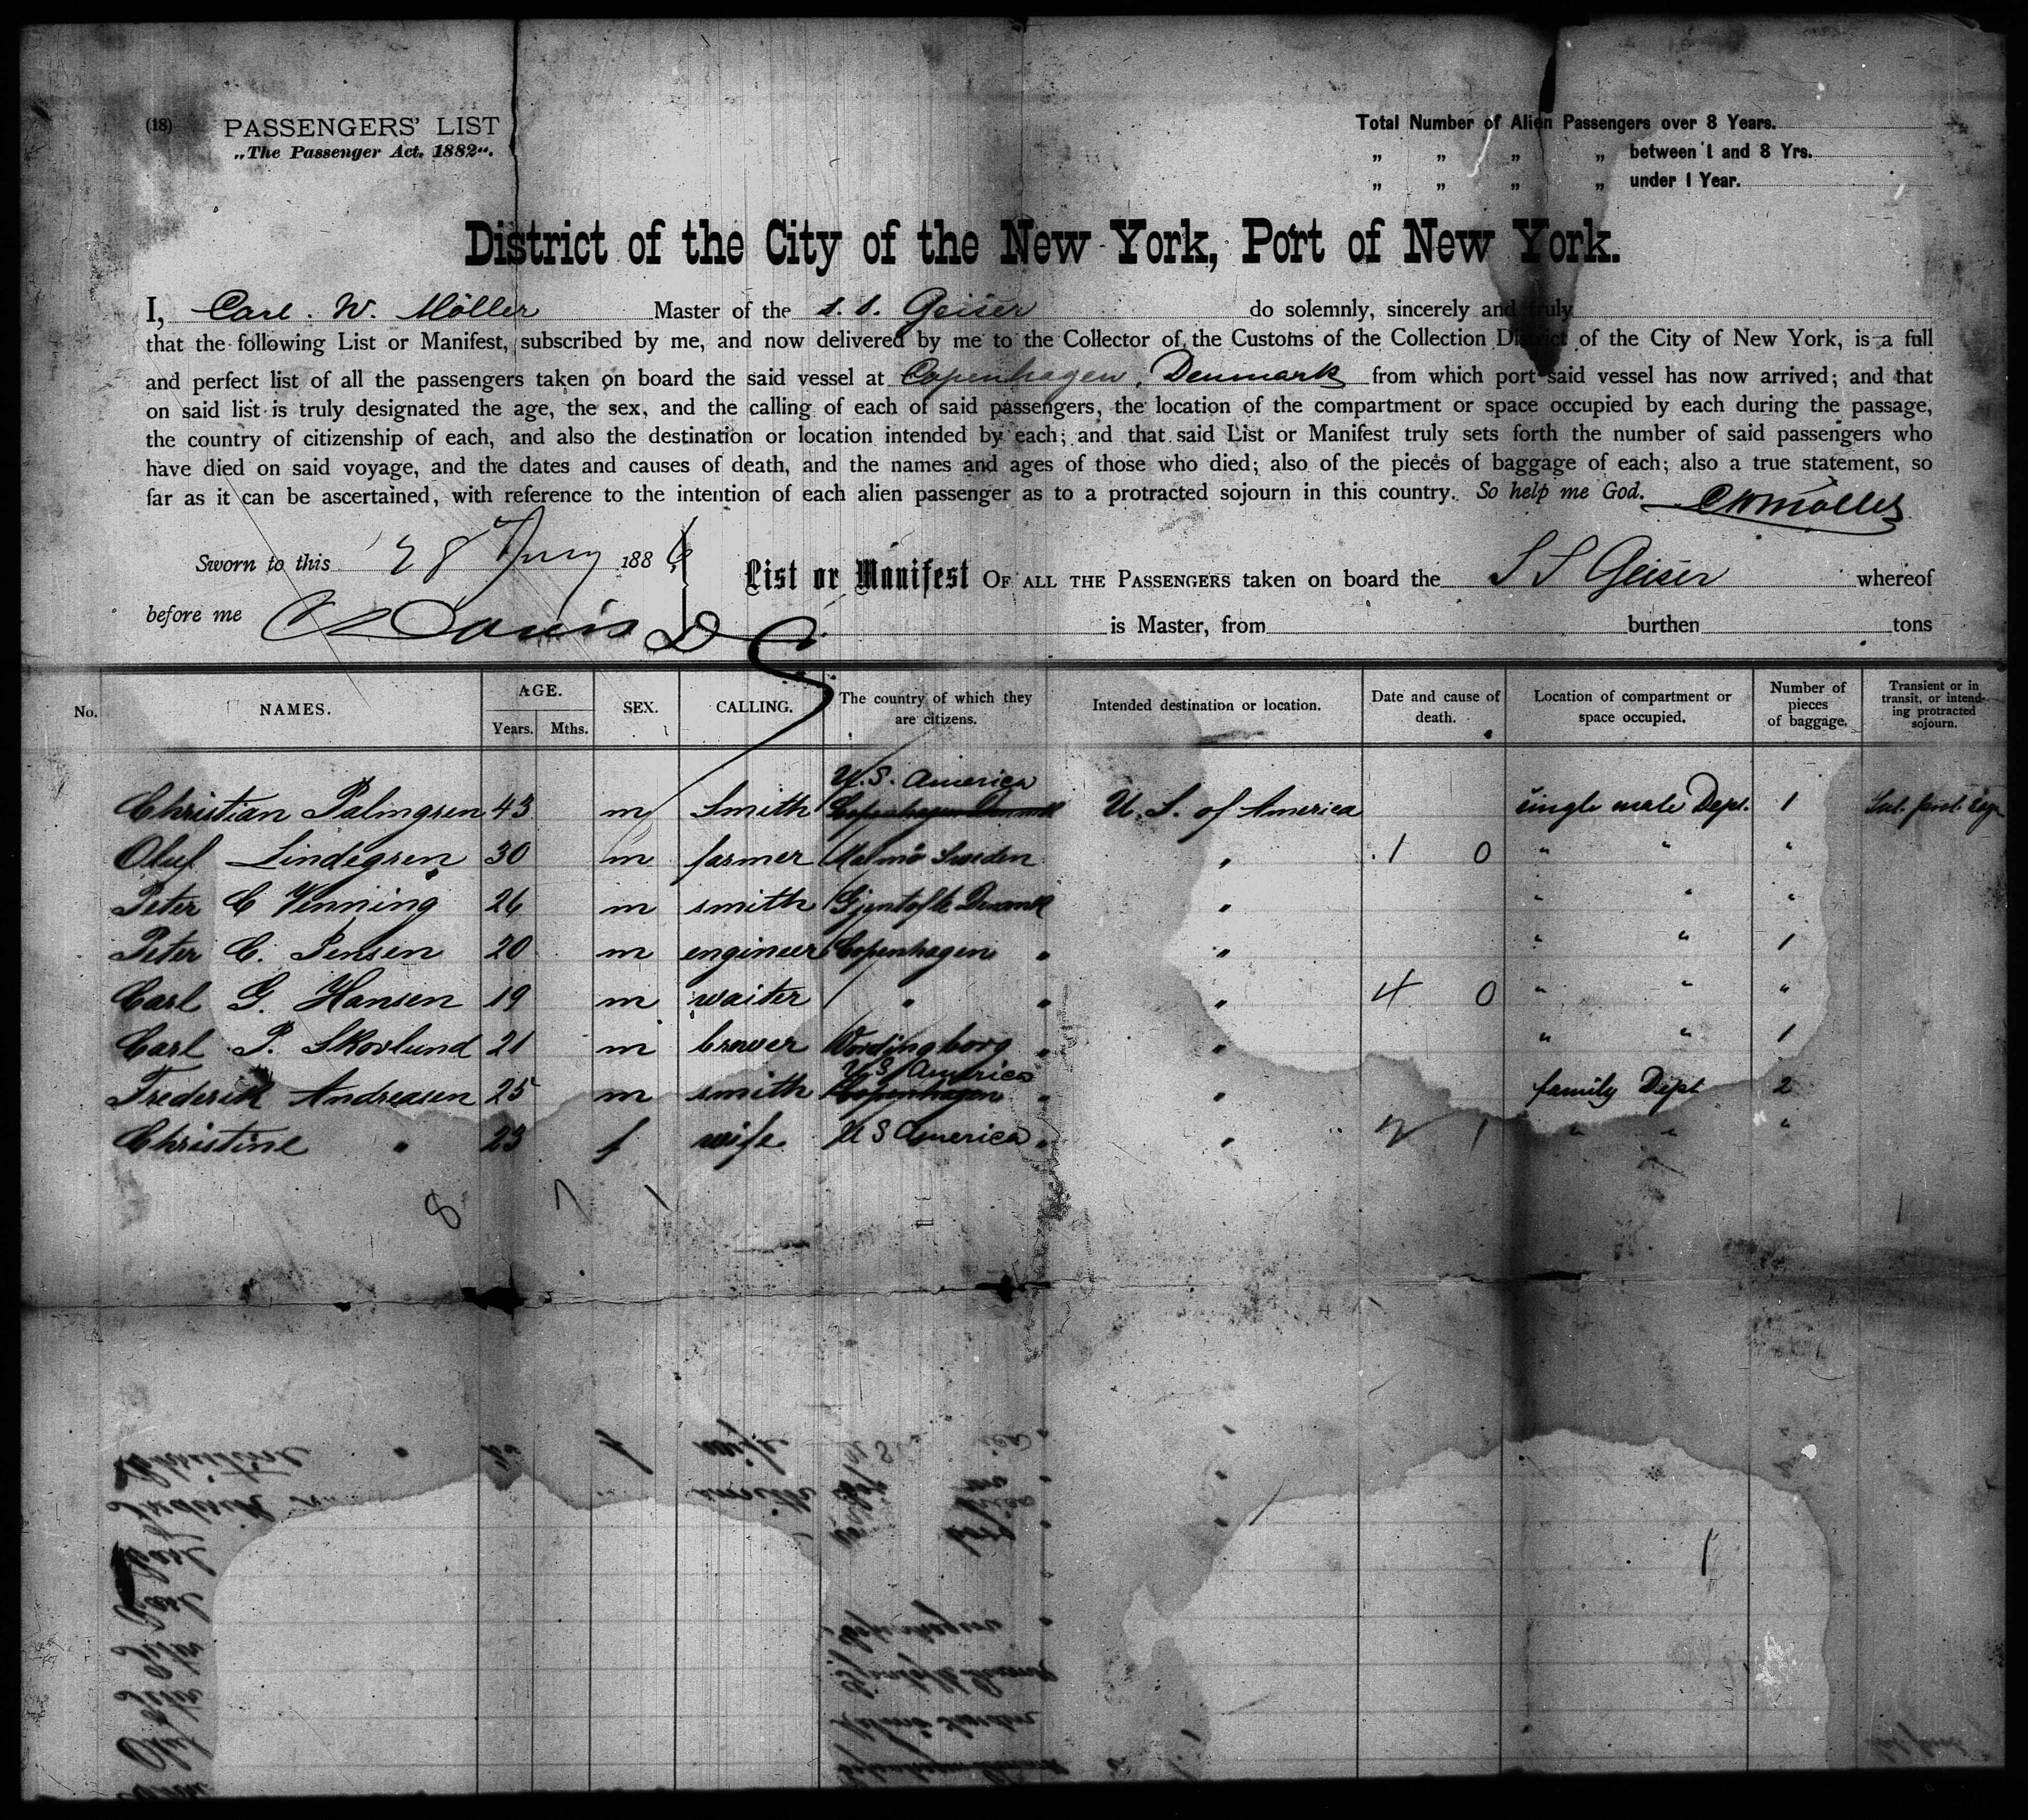 (18) PASSENGERS' LIST
„The Passenger Act. 1882“.
Total Number of Alien Passengers over 8 Years.
„ „ „ „ between 1 and 8 Yrs.
„ „ „ „ under 1 Year.
District of the City of the New York, Port of New York.
I, Carl. W. Möller Master of the s. s. Geiser do solemnly, sincerely and truly
that the following List or Manifest, subscribed by me, and now delivered by me to the Collector of the Customs of the Collection District of the City of New York, is a full
and perfect list of all the passengers taken on board the said vessel at Copenhagen, Denmark from which port said vessel has now arrived; and that
on said list is truly designated the age, the sex, and the calling of each of said passengers, the location of the compartment or space occupied by each during the passage,
the country of citizenship of each, and also the destination or location intended by each; and that said List or Manifest truly sets forth the number of said passengers who
have died on said voyage, and the dates and causes of death, and the names and ages of those who died; also of the pieces of baggage of each; also a true statement, so
far as it can be ascertained, with reference to the intention of each alien passenger as to a protracted sojourn in this country. So help me God. CWMöller
Sworn to this 28 1886
before me Davis
List or Manifest OF ALL THE PASSENGERS taken on board the S S Geiser whereof
is Master, from burthen tons
No. NAMES. AGE. Years. Mths. SEX. CALLING. The country of which they are citizens. Intended destination or location. Date and cause of death. Location of compartment or space occupied. Number of pieces of baggage. Transient or in transit, or intending protracted sojourn.
U.S. America
Christian Palmgren 43 m Smith Copenhagen Denmark U. S. of America single male Dept. 1
Oluf Lindegren 30 m farmer Malmö Sweden " 1 0 " " "
Peter C Venning 26 m smith Gjentofte Denmark " " " "
Peter C. Jensen 20 m engineer Copenhagen " " " " 1
Carl G. Hansen 19 m waiter " " " 4 0 " " "
Carl P. Skovlund 21 m brewer Wordingborg " " " " 1
U.S. America
Frederik Andreasen 25 m smith Copenhagen " " family Dept 2
Christine " 23 f wife U S America " " 2 1 " " "
8 7 1